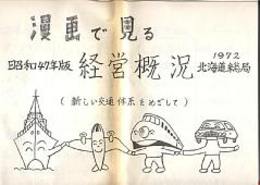 漫画で見る
昭和47年版 経営概況 1972 北海道総局
(新しい交通体系をめざして)